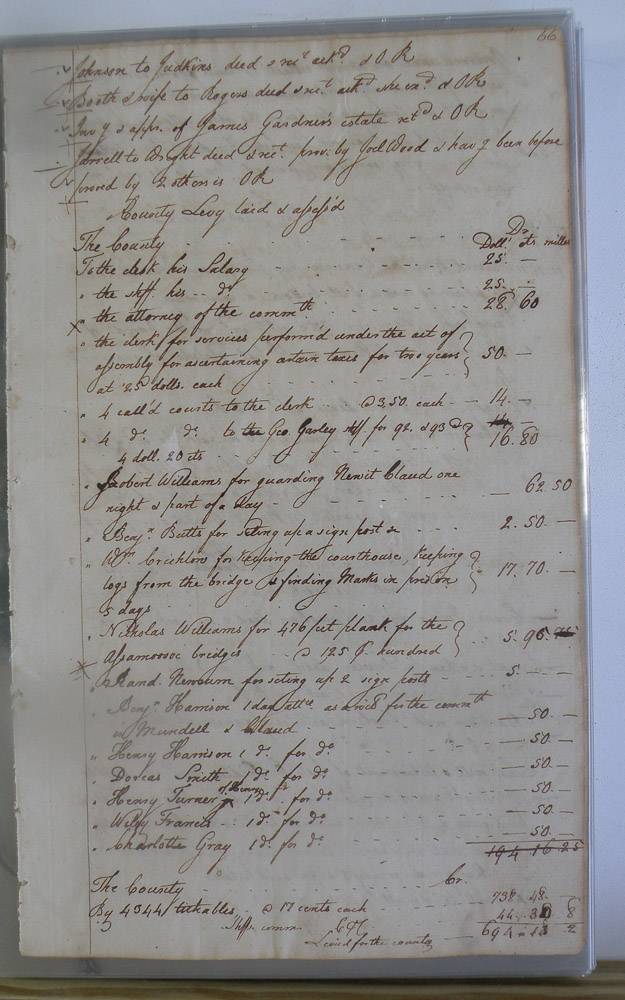 66
Johnson to Judkins deed & rect. ackd. & OR
Booth & wife to Rogers deed & rect. ackd. she exd. & OR
Invy. & appr. of James Gardner's estate retd. & OR
Jarrell to Wright deed & rect. prov. by Joel Wood & havg. been before
proved by 2 others is OR
County Levy laid & assess'd
Dr.
The County Doll. cts mills
To the clerk his Salary 25. —
" the shff. his do 25. —
" the attorney of the commth. 28. 60
" the clerk for services performed under the act of
assembly for ascertaining certain taxes for two years 50. —
at 25 dolls. each
" 4 call'd courts to the clerk @ 3,50. each 14. —
" 4 do. do. to Geo. Gurley shff for 92. & 93 @ 16.80
4 doll. 20 cts
Robert Williams for guarding Newit Claud one
night & part of a day 62 50
" Benjn. Betts for setting up a sign post &c 2. 50. —
" Wm. Crichlow for keeping the courthouse, keeping
logs from the bridge & finding Marks in prison 17. 70. —
5 days
" Nicholas Williams for 476 feet plank for the
Assamoosoc bridges @ 125 P hundred 5. 95.
" Rand. Newsum for seting up 2 sign posts 5 —
Benjn. Harrison 1 day attce. as a for the commth
vs Mundell & Claud — 50. —
" Henry Harrison 1 do. for do. — 50. —
" Dorcas Smith 1 do. for do. — 50. —
" Henry Turner of Henry 1 do. for do. — 50. —
" Wiley Francis 1 do. for do. — 50. —
" Charlotte Gray 1 do. for do. — 50. —
194 16 25
The County Cr.
By 4344 tithables @ 17 cents each 738. 48. —
Shffs. comm. 44 8
Levied for the county 694 2